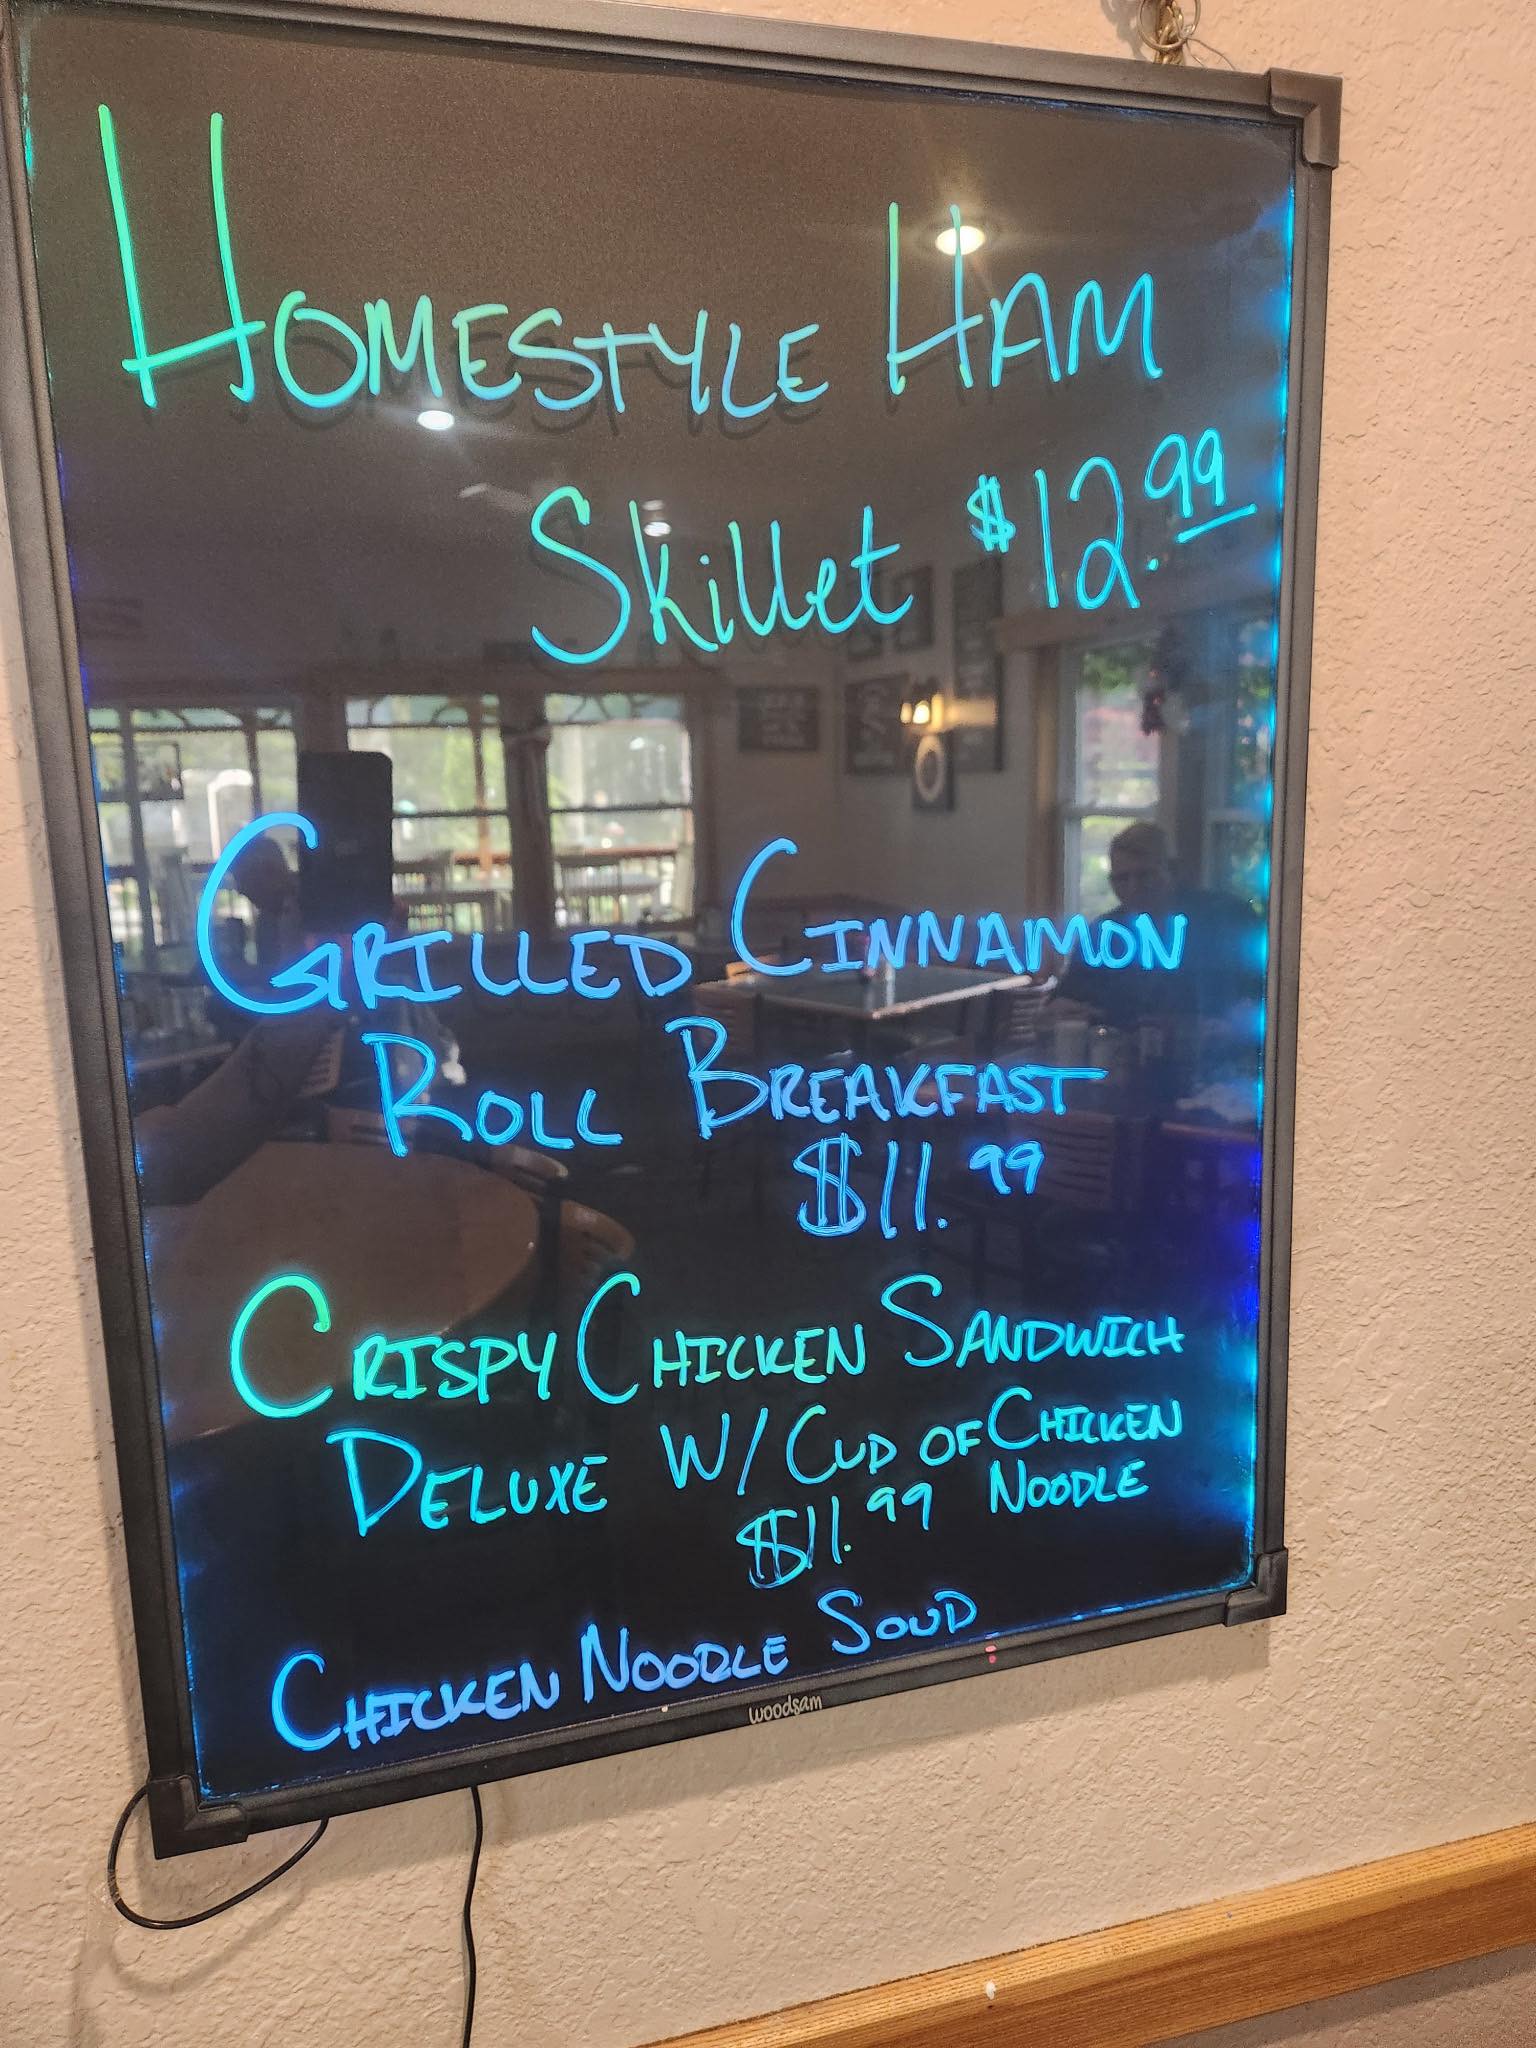 HOMESTYLE HAM
Skillet $12.99
GRILLED CINNAMON
ROLL BREAKFAST
$11.99
CRISPY CHICKEN SANDWICH
DELUXE W/ CUP OF CHICKEN
$11.99 NOODLE
CHICKEN NOODLE SOUP
woodsam